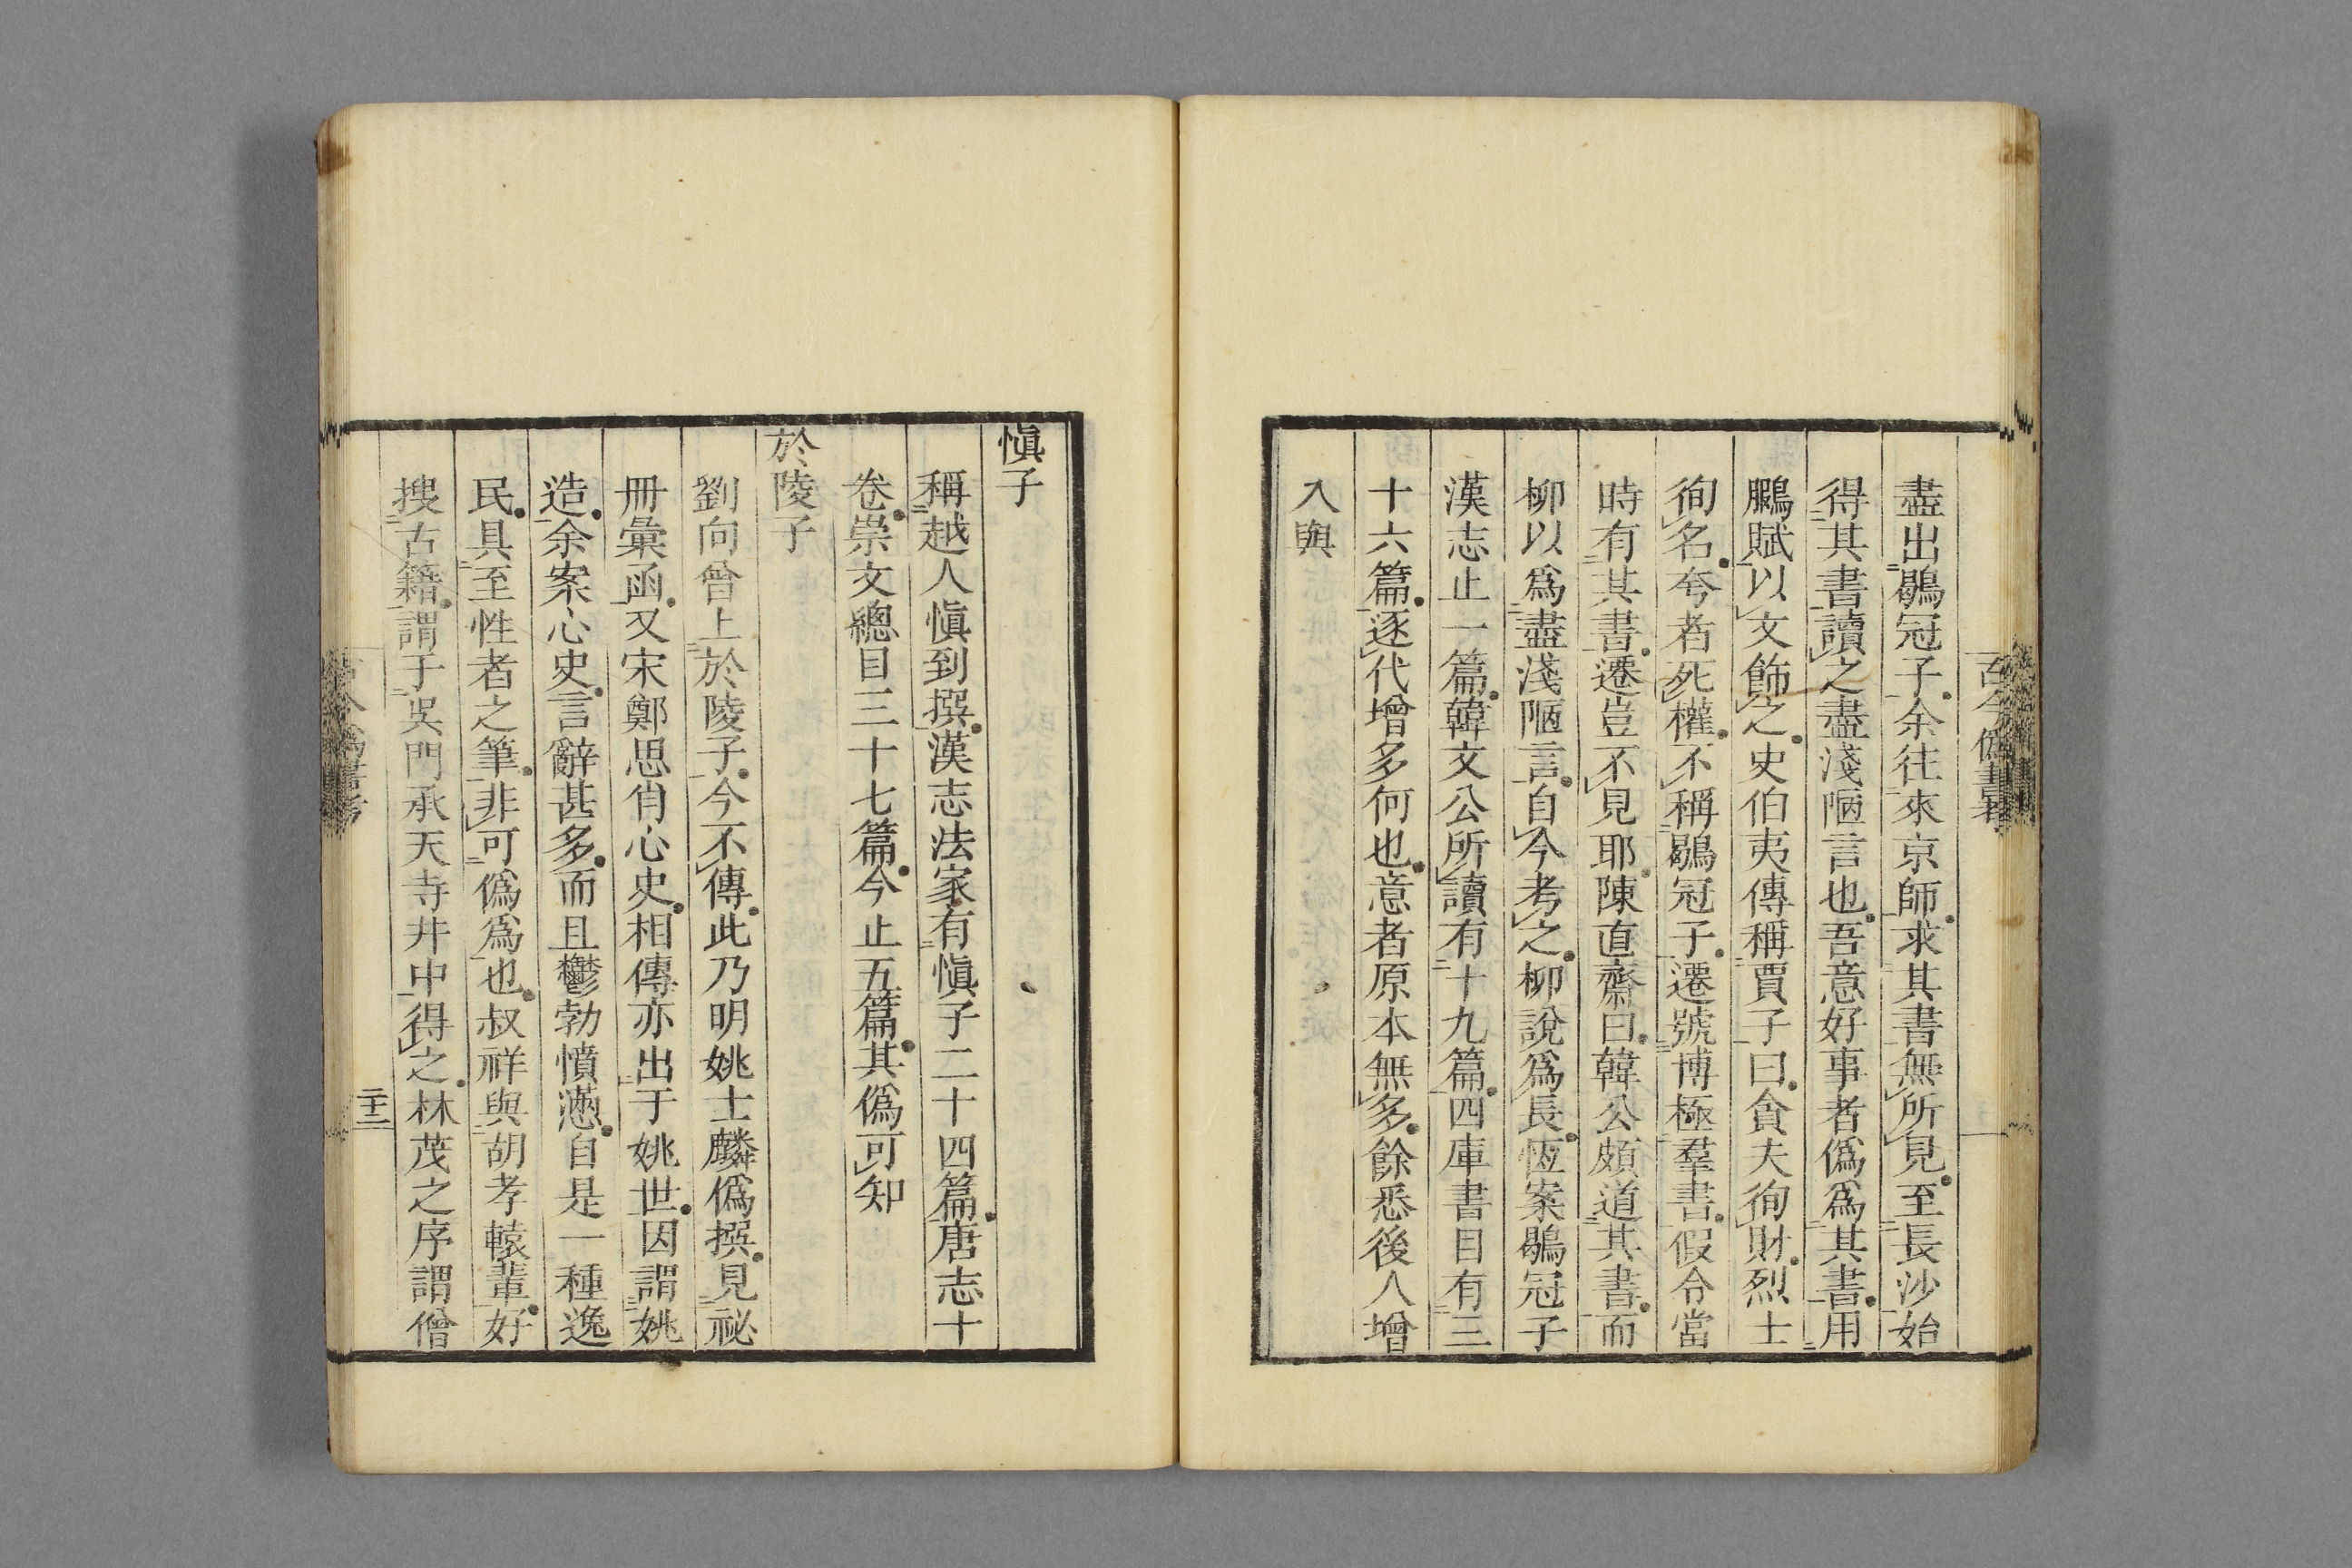 古今僞書考
盡出鶡冠子余往來京師求其書無所見至長沙始
得其書讀之盡淺陋言也吾意好事者僞爲其書用
鵩賦以文飾之史伯夷傳稱賈子曰貪夫徇財烈士
徇名夸者死權不稱鶡冠子遷號博極羣書假令當
時有其書遷豈不見耶陳直齋曰韓公頗道其書而
柳以爲盡淺陋言自今考之柳說爲長恆案鶡冠子
漢志止一篇韓文公所讀有十九篇四庫書目有三
十六篇逐代增多何也意者原本無多餘悉後人增
入與
愼子
稱越人愼到撰漢志法家有愼子二十四篇唐志十
卷崇文總目三十七篇今止五篇其僞可知
於陵子
劉向曾上於陵子今不傳此乃明姚士麟僞撰見祕
冊彙函又宋鄭思肖心史相傳亦出于姚世因謂姚
造余案心史言辭甚多而且鬱勃憤懣自是一種逸
民具至性者之筆非可僞爲也叔祥與胡孝轅輩好
搜古籍謂于吳門承天寺井中得之林茂之序謂僧
古今僞書考
二十二